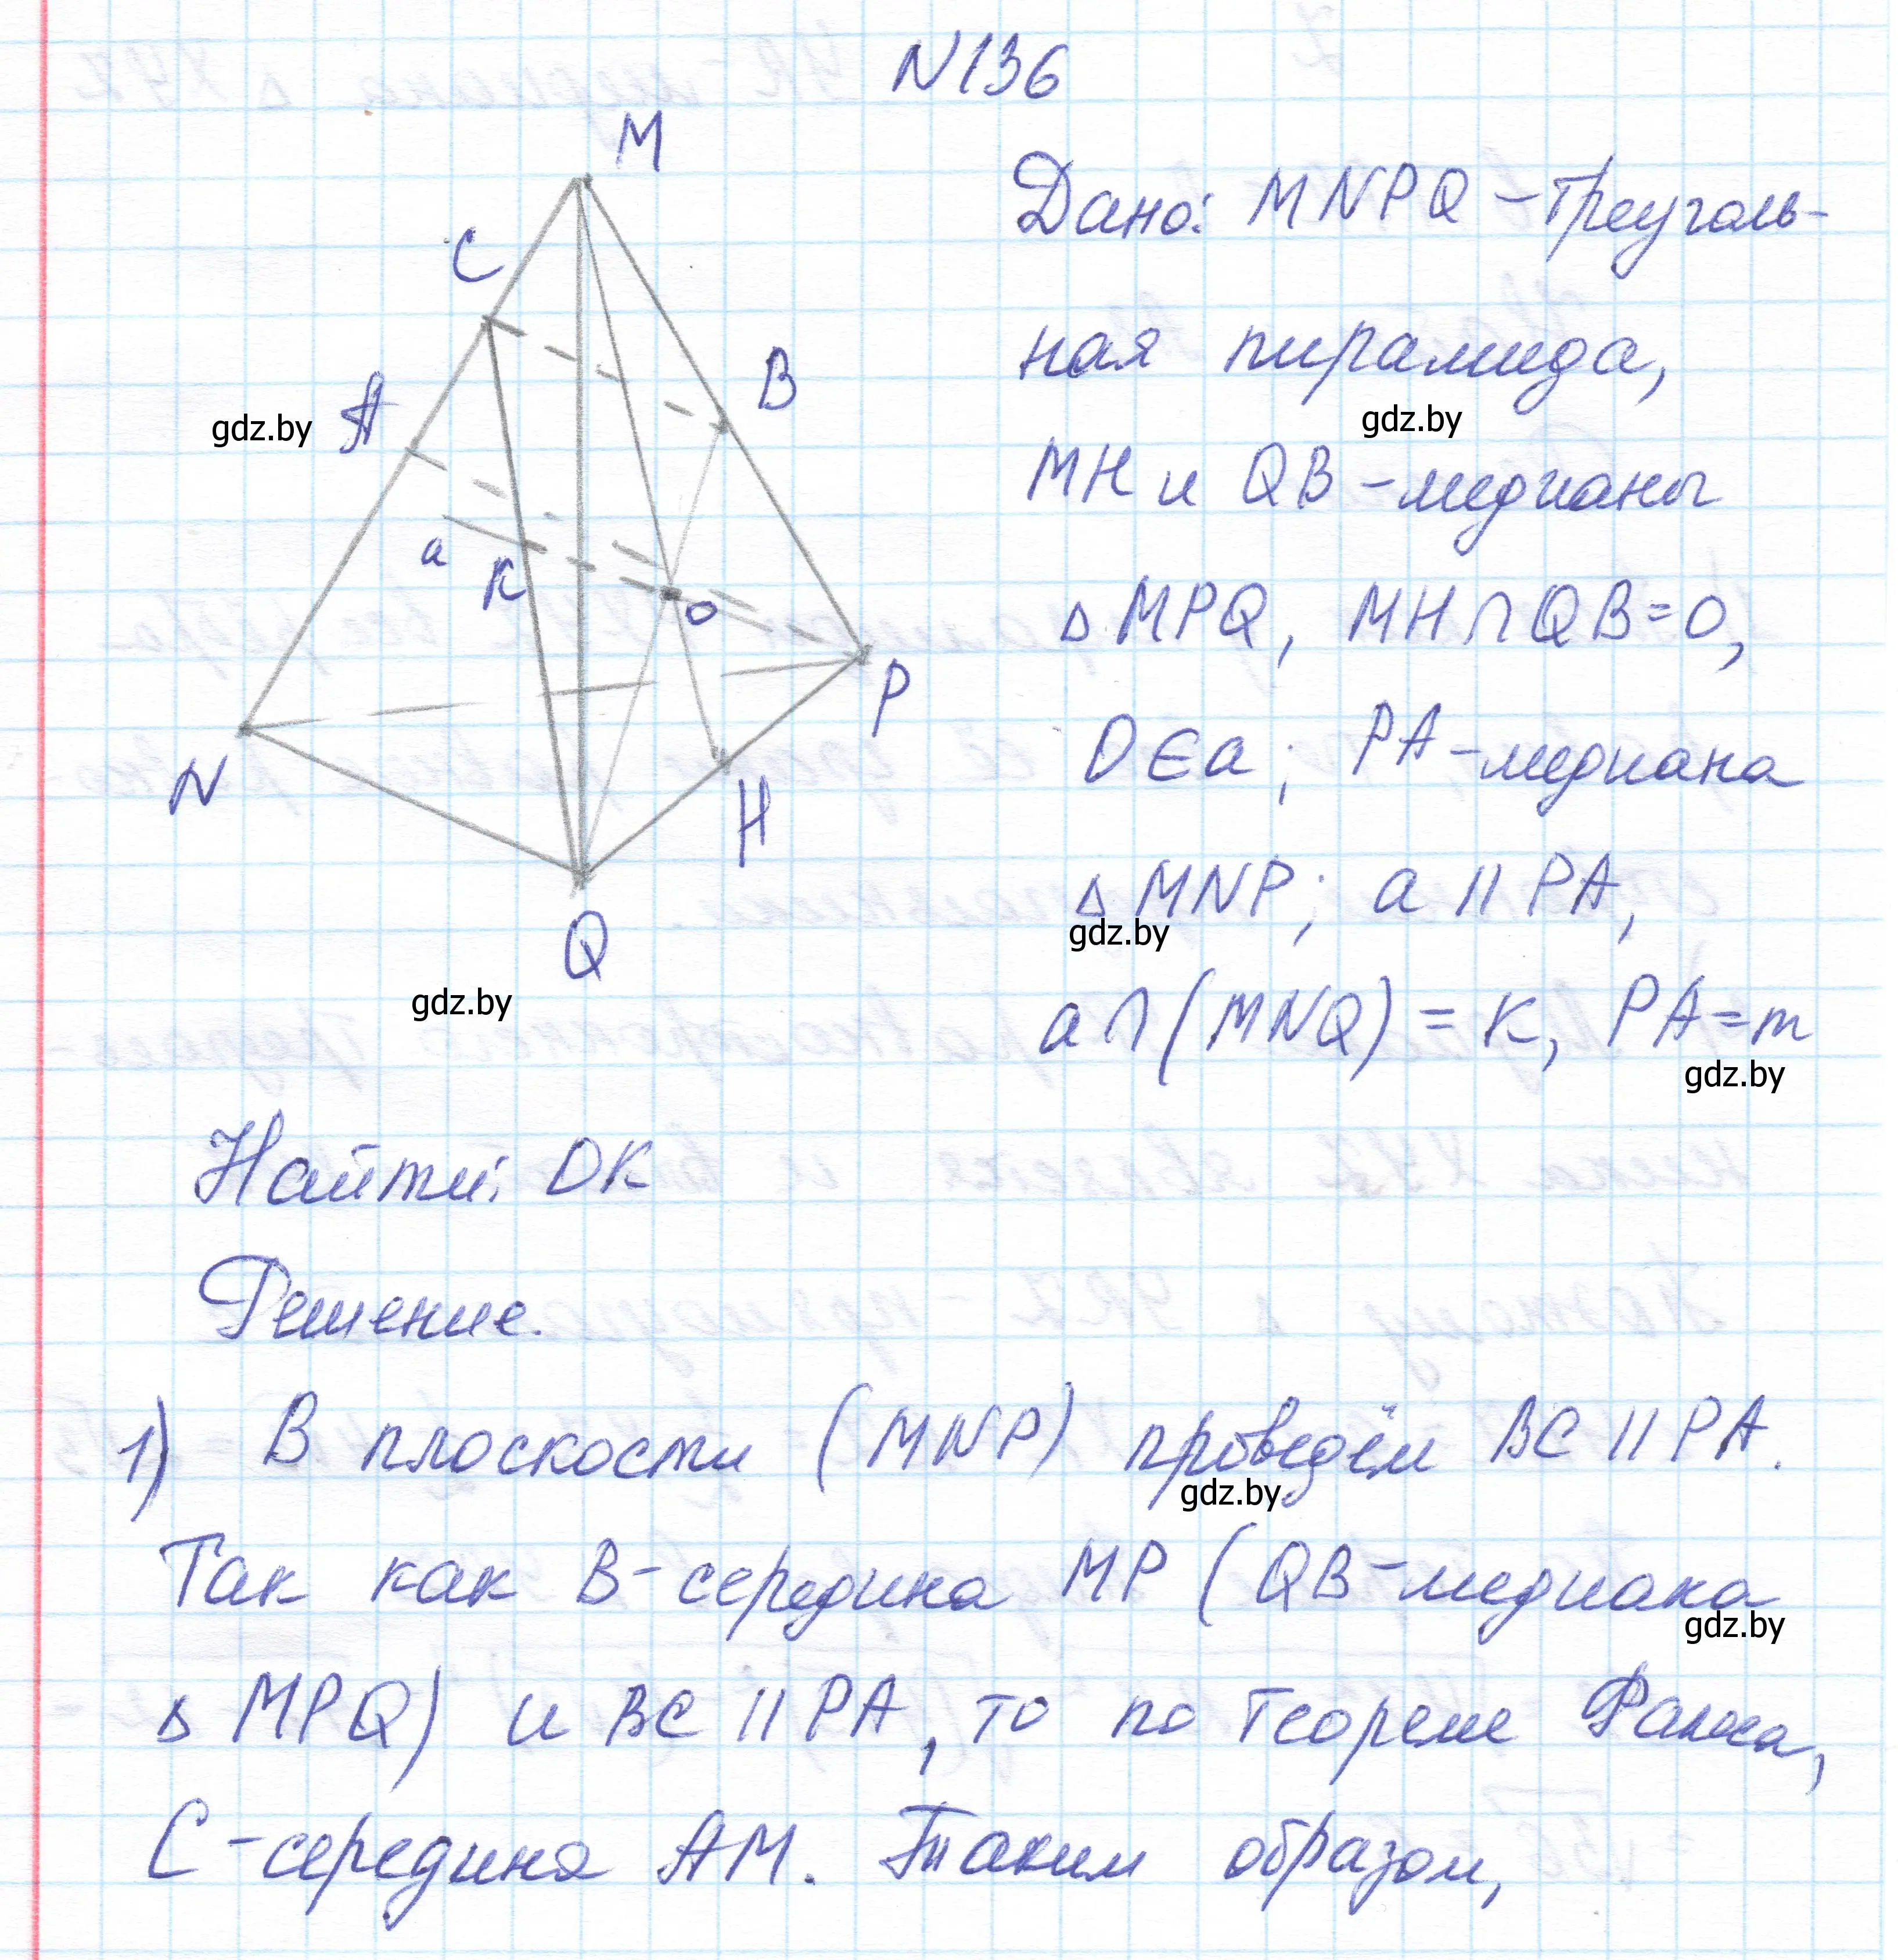 N136
M
C
B
gdz.by
A
a
K
O
P
N
H
Q
gdz.by
Дано: MNPQ – треуголь-
ная пирамида,
gdz.by
MH и QB – медианы
Δ MPQ, MH ∩ QB = O,
O ∈ a; PA – медиана
Δ MNP; a || PA,
gdz.by
a ∩ (MNQ) = K, PA = m
gdz.by
Найти: OK
Решение.
1) В плоскости (MNP) проведём BC || PA.
gdz.by
Так как B – середина MP (QB – медиана
gdz.by
Δ MPQ) и BC || PA, то по теореме Фалеса,
C – середина AM. Таким образом,